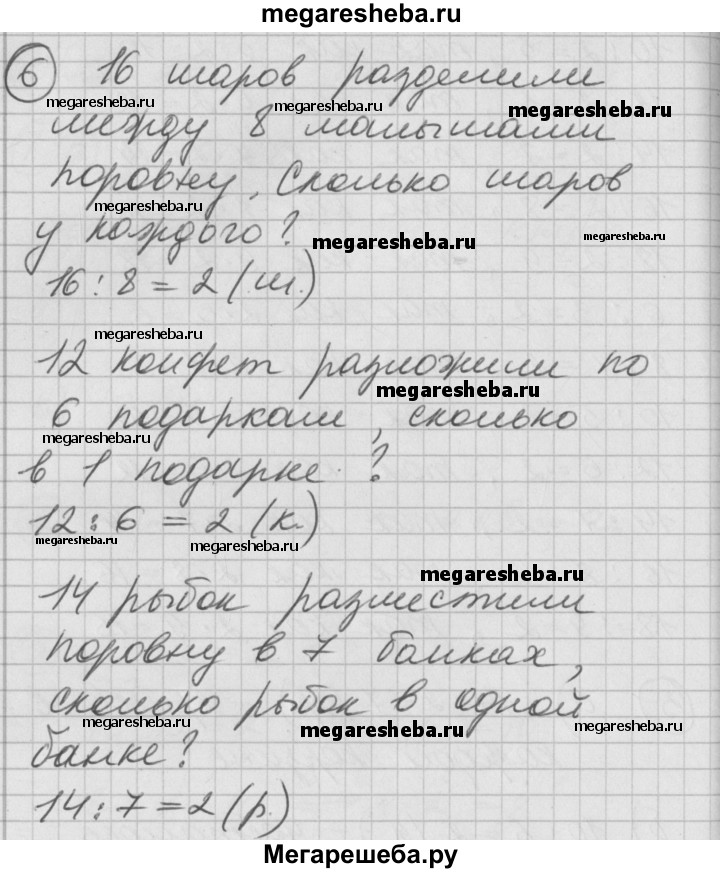 megaresheba.ru
6 16 шаров разделили
megaresheba.ru megaresheba.ru
между 8 малышами
поровну, Сколько шаров
megaresheba.ru
у каждого? megaresheba.ru
16:8=2 (ш.)
megaresheba.ru
12 конфет разложили по
megaresheba.ru
6 подаркам, сколько
megaresheba.ru
в 1 подарке ?
12:6=2 (к.)
megaresheba.ru megaresheba.ru
megaresheba.ru
14 рыбок разместили
поровну в 7 банках,
сколько рыбок в одной
megaresheba.ru megaresheba.ru megaresheba.ru
банке?
14:7=2 (р.)
Мегарешеба.ру